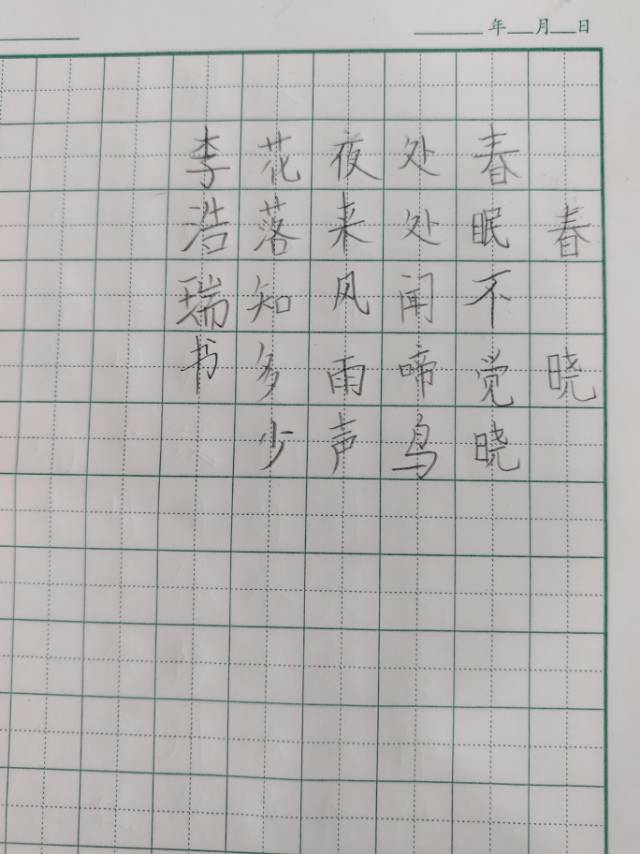 年 月 日
春晓
春眠不觉晓
处处闻啼鸟
夜来风雨声
花落知多少
李浩瑞书